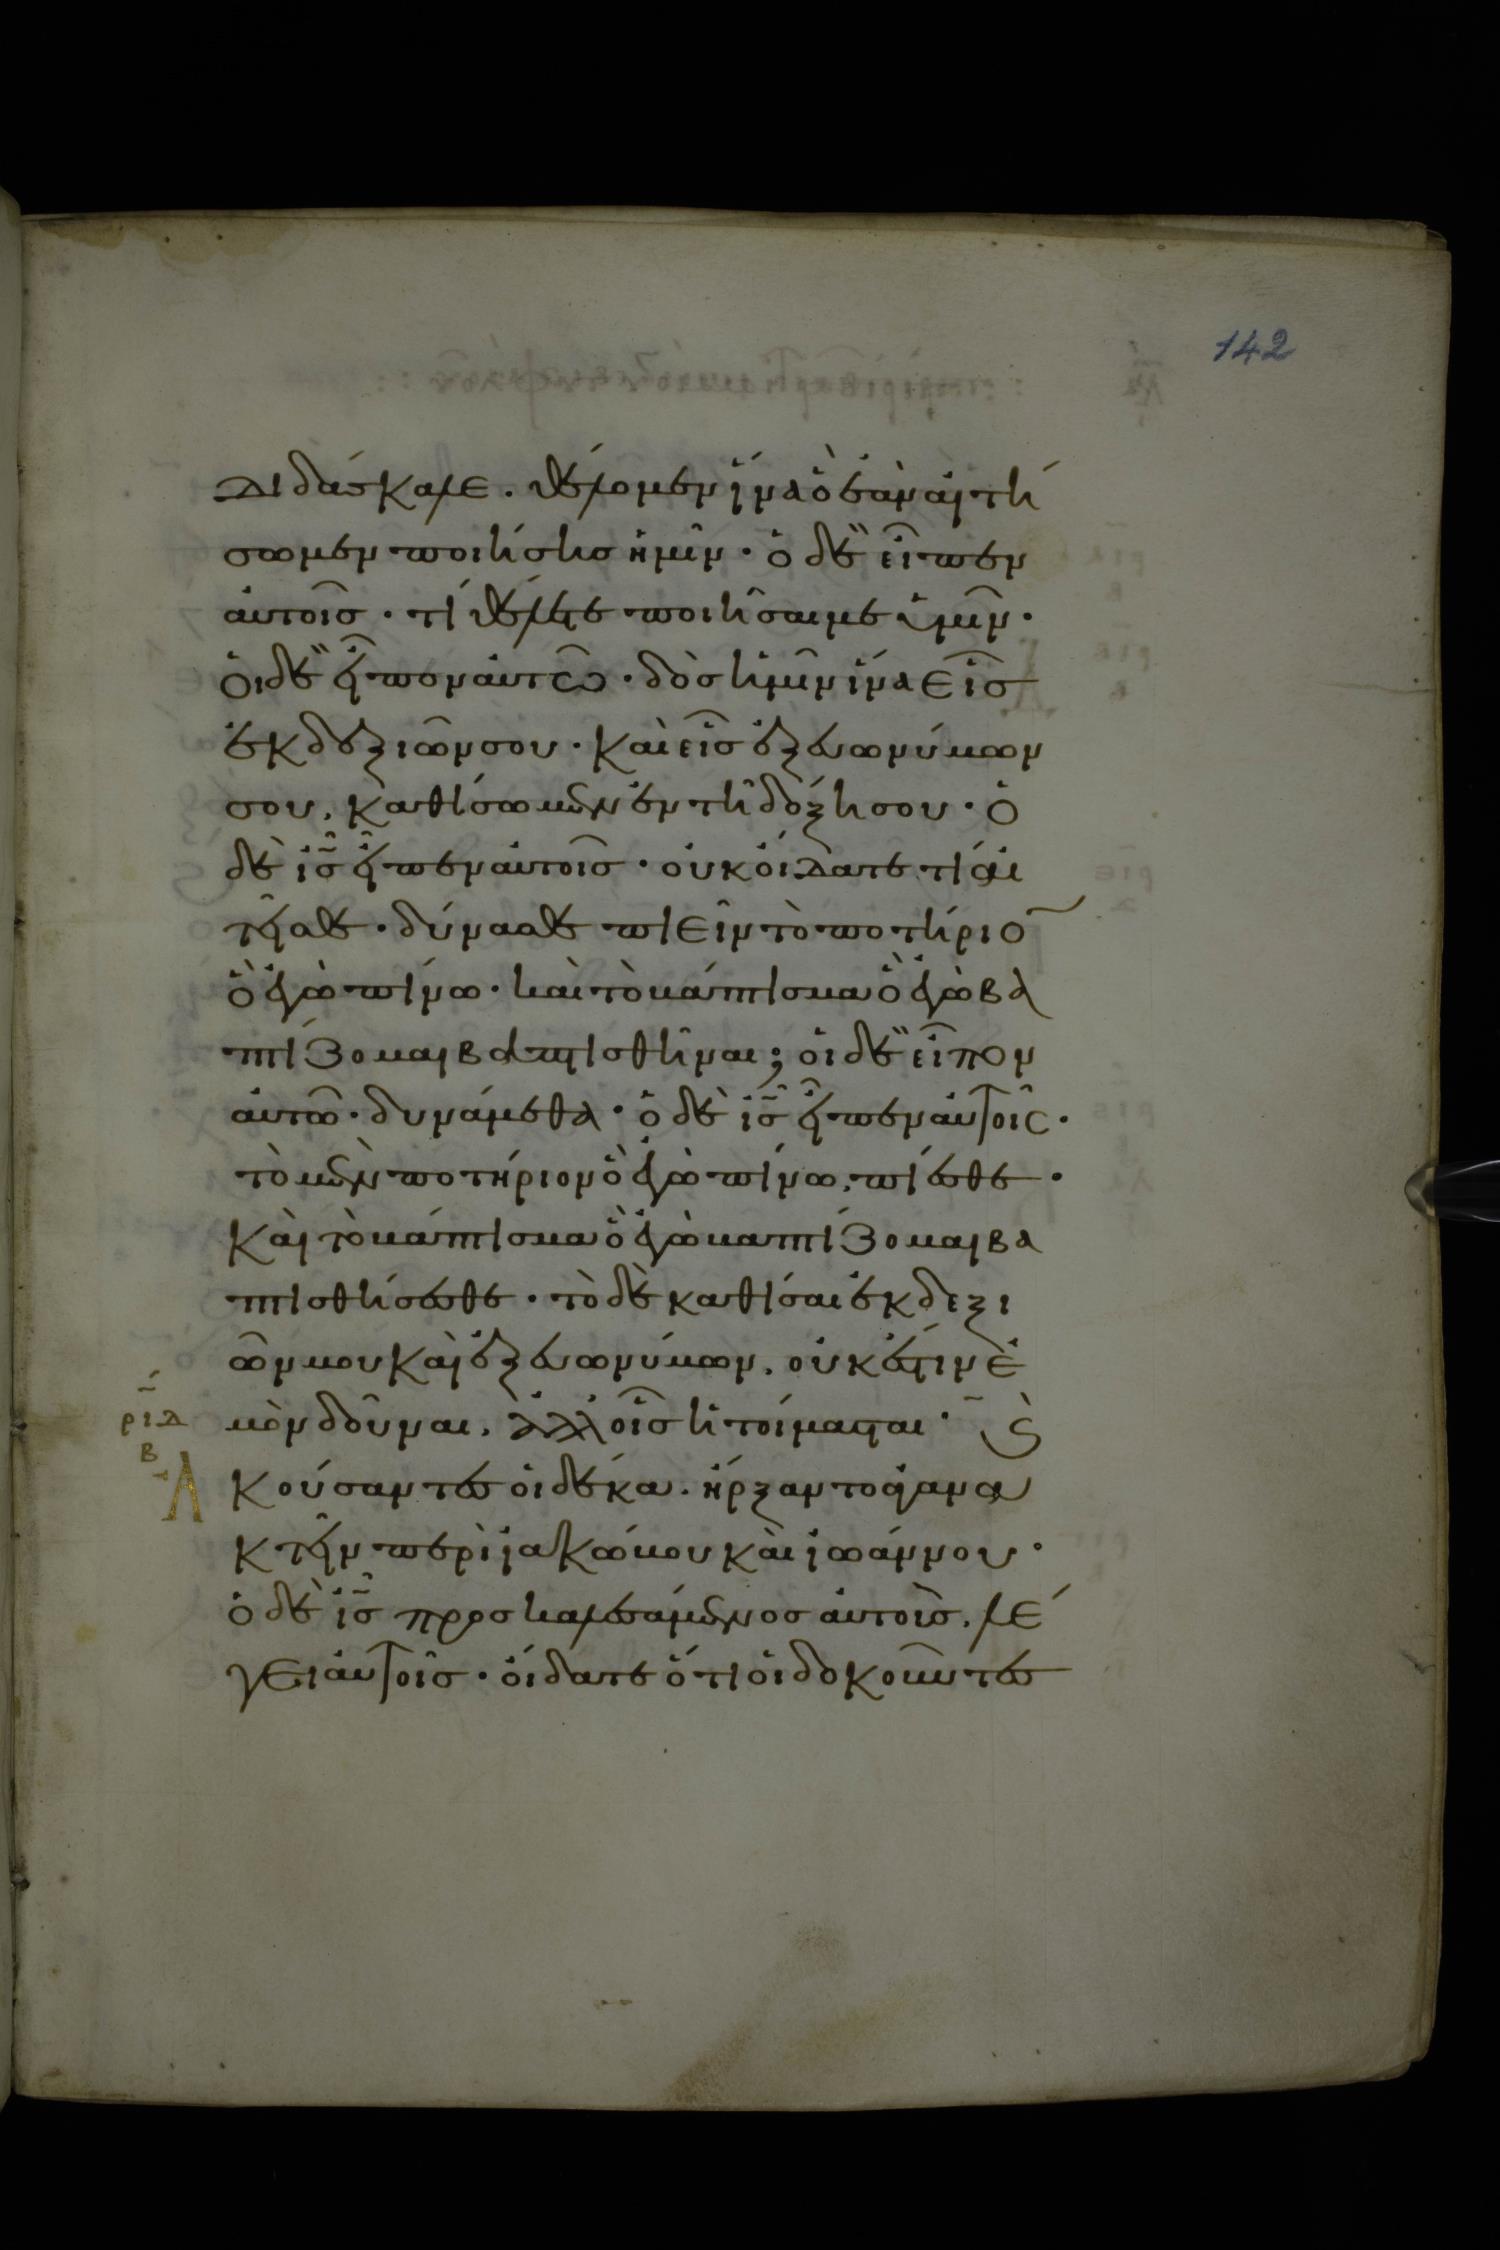 142
διδάσκαλε. θέλομεν ἵνα ὃ ἐὰν αἰτή
σωμεν ποιήσης ἡμῖν· ὁ δὲ εἶπεν
αὐτοῖς· τί θέλετε ποιῆσαι με ὑμῖν·
οἱ δὲ εἶπον αὐτῶ· δὸς ἡμῖν ἵνα εἷς
ἐκ δεξιῶν σου· καὶ εἷς ἐξ εὐωνύμων
σου, καθίσωμεν ἐν τῆ δόξη σου· ὁ
δὲ ἰς̅ εἶπεν αὐτοῖς· οὐκ οἴδατε τί αἰ
τεῖσθε· δύνασθε πιεῖν τὸ ποτήριο̅
ὃ ἐγὼ πίνω· καὶ τὸ βάπτισμα ὃ ἐγὼ βα
πτίζομαι βαπτισθῆναι; οἱ δὲ εἶπον
αὐτῶ· δυνάμεθα· ὁ δὲ ἰς̅ εἶπεν αὐτοῖς·
τὸ μὲν ποτήριον ὃ ἐγὼ πίνω, πίεσθε·
καὶ τὸ βάπτισμα ὃ ἐγὼ βαπτίζομαι βα
πτισθήσεσθε· τὸ δὲ καθίσαι ἐκ δεξι
ῶν μου καὶ ἐξ εὐωνύμων, οὐκ ἔστιν ἐ
ρι̅δ μὸν δοῦναι, ἀλλ οἷς ἡτοίμασται· ϛ̀
β
Α κούσαντες οἱ δέκα. ἤρξαντο ἀγανα
κτεῖν περὶ ἰακώβου καὶ ἰωάννου·
ὁ δὲ ἰς̅ προσκαλεσάμενος αὐτοὺς, λέ
γει αὐτοῖς· οἴδατε ὅτι οἱ δοκοῦντες